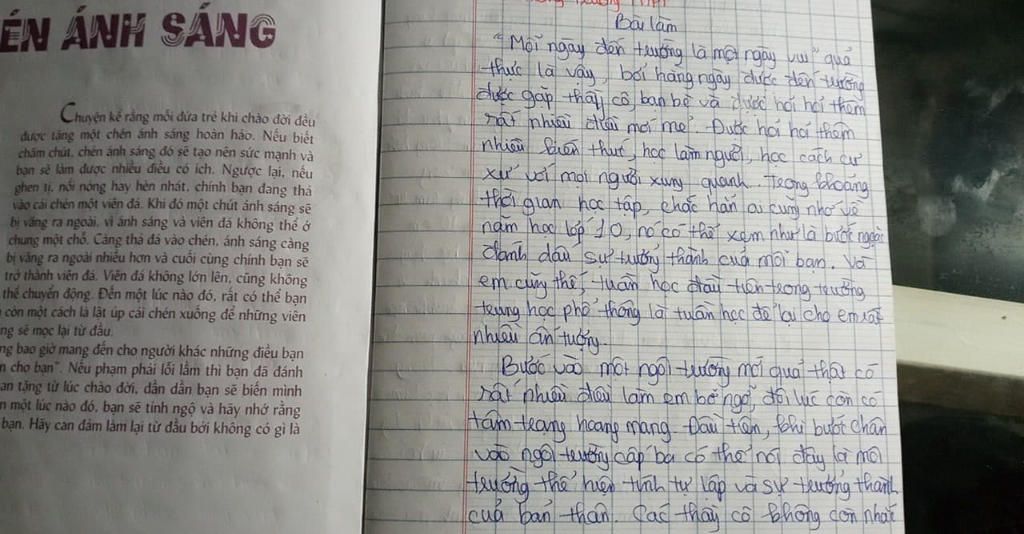 ÉN ÁNH SÁNG
Chuyện kể rằng mỗi đứa trẻ khi chào đời đều
được tặng một chén ánh sáng hoàn hảo. Nếu biết
chăm chút, chén ánh sáng đó sẽ tạo nên sức mạnh và
bạn sẽ làm được nhiều điều có ích. Ngược lại, nếu
ghen tị, nổi nóng hay hèn nhát, chính bạn đang thả
vào cái chén một viên đá. Khi đó một chút ánh sáng sẽ
bị văng ra ngoài, vì ánh sáng và viên đá không thể ở
chung một chỗ. Càng thả đá vào chén, ánh sáng càng
bị văng ra ngoài nhiều hơn và cuối cùng chính bạn sẽ
trở thành viên đá. Viên đá không lớn lên, cũng không
thể chuyển động. Đến một lúc nào đó, rất có thể bạn
còn một cách là lật úp cái chén xuống để những viên
ng sẽ mọc lại từ đầu.
ng bao giờ mang đến cho người khác những điều bạn
n cho bạn". Nếu phạm phải lỗi lầm thì bạn đã đánh
an tặng từ lúc chào đời, dần dần bạn sẽ biến mình
n một lúc nào đó, bạn sẽ tỉnh ngộ và hãy nhớ rằng
bạn. Hãy can đảm làm lại từ đầu bởi không có gì là
Bài làm
"Mỗi ngày đến trường là một ngày vui" quả
thực là vậy, bởi hàng ngày được đến trường
được gặp thầy cô, bạn bè và được học hỏi thêm
rất nhiều điều mới mẻ. Được học hỏi thêm
nhiều kiến thức, học làm người, học cách cư
xử với mọi người xung quanh. Trong khoảng
thời gian học tập, chắc hẳn ai cũng nhớ về
năm học lớp 10, nó có thể xem như là bước ngoặc
đánh dấu sự trưởng thành của mỗi bạn. Và
em cũng thế, tuần học đầu tiên trong trường
trung học phổ thông là tuần học để lại cho em rất
nhiều ấn tượng.
Bước vào một ngôi trường mới quả thật có
rất nhiều điều làm em bỡ ngỡ, đôi lúc còn có
tâm trạng hoang mang. Đầu tiên, khi bước chân
vào ngôi trường cấp ba có thể nói đây là môi
trường thể hiện tính tự lập và sự trưởng thành
của bản thân. Các thầy cô không còn nhắc